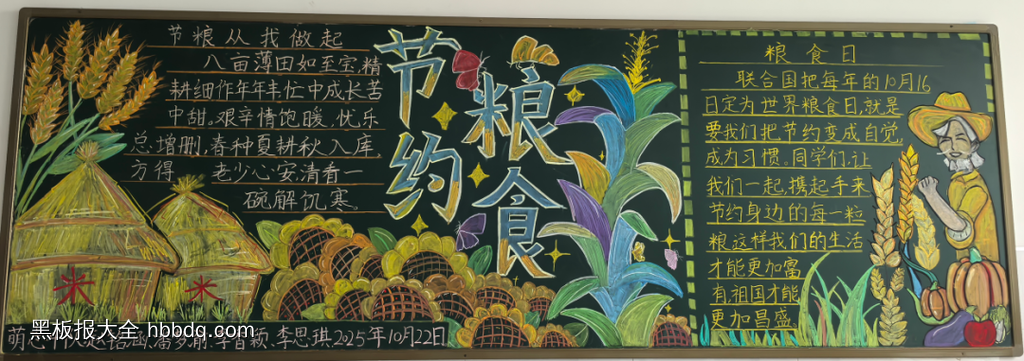 节粮从我做起
八亩薄田如至宝,精
耕细作年年丰忙中成长苦
中甜,艰辛情饱暖,忧乐
总增删,春种夏耕秋入库,
方得 老少心安,清看一
碗解饥寒。
节约
粮食
粮食日
联合国把每年的10月16
日定为世界粮食日,就是
要我们把节约变成自觉,
成为习惯。同学们,让
我们一起,携起手来
节约身边的每一粒
粮这样我们的生活
才能更加富
有,祖国才能
更加昌盛
米
米
李思琪2025年10月22日
黑板报大全 hbbdq.com